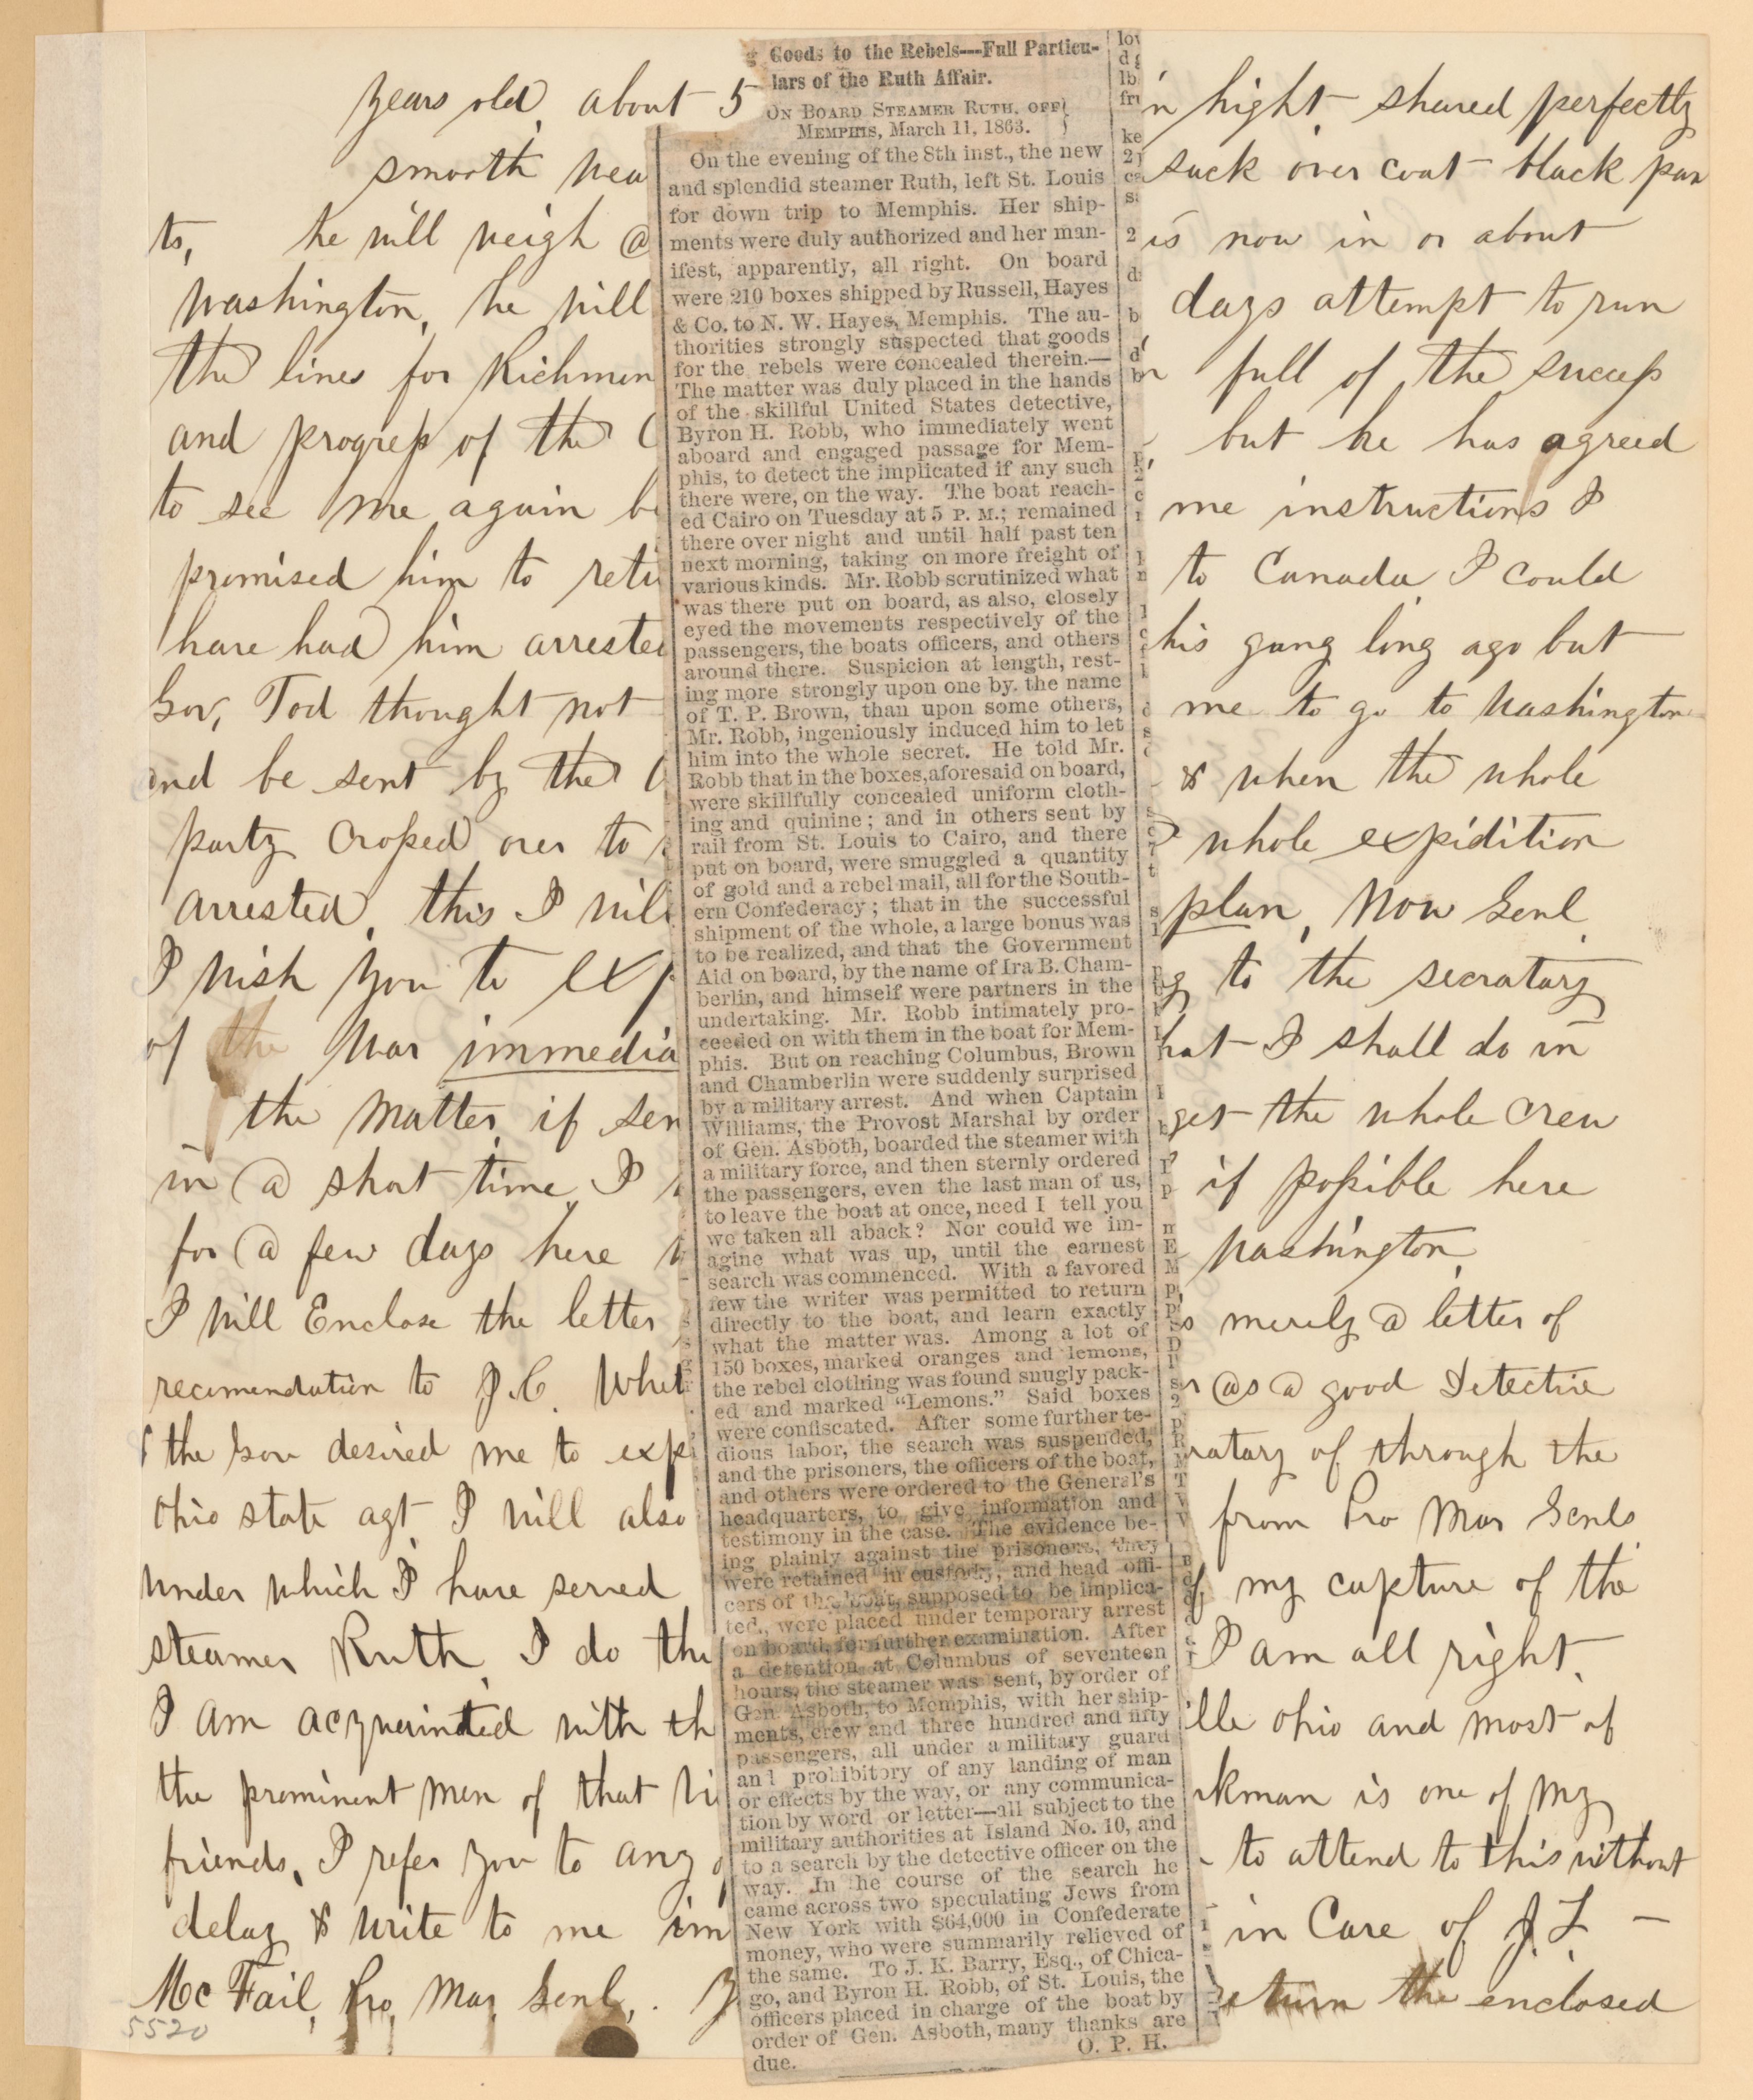 years old, about 5 n hight shaved perfectly
smooth wea sack over coat black pan
ts, he will weigh @ is now in or about
Washington, he will days attempt to run
the lines for Richmon full of the success
and progress of the but he has agreed
to see me again be me instructions I
promised him to retu to Canada I could
have had him arreste his gang long ago but
Gov, Tod thought not me to go to Washington
and be sent by the & when the whole
party crossed over to whole expidition
arrested, this I will plan, Now Genl
I wish you to exp g to the secratary
of the War immedia hat I shall do in
the matter, if sen get the whole crew
in a short time, I if possible here
for a few days here Washington,
I will Enclose the letter s merely a letter of
recomendation to J.C. Whet r as a good Detective
the Gov desired me to exp ratary of through the
Ohio state agt, I will also from Pro Mar Genls
under which I have served my capture of the
steamer Ruth, I do th I am all right,
I am acquainted with th lle Ohio and most of
the prominent men of that kman is one of my
friends, I refer you to any to attend to this without
delay & write to me im in Care of J. L. —
McFail, Pro, Mar, Genl, . eturn the enclosed
5520
Goods to the Rebels---Full Particu-
lars of the Ruth Affair.
ON BOARD STEAMER RUTH, OFF
MEMPHIS, March 11, 1863.
On the evening of the 8th inst., the new
and splendid steamer Ruth, left St. Louis
for down trip to Memphis. Her ship-
ments were duly authorized and her man-
ifest, apparently, all right. On board
were 210 boxes shipped by Russell, Hayes
& Co. to N. W. Hayes, Memphis. The au-
thorities strongly suspected that goods
for the rebels were concealed therein.—
The matter was duly placed in the hands
of the skillful United States detective,
Byron H. Robb, who immediately went
aboard and engaged passage for Mem-
phis, to detect the implicated if any such
there were, on the way. The boat reach-
ed Cairo on Tuesday at 5 P. M.; remained
there over night and until half past ten
next morning, taking on more freight of
various kinds. Mr. Robb scrutinized what
was there put on board, as also, closely
eyed the movements respectively of the
passengers, the boats officers, and others
around there. Suspicion at length, rest-
ing more strongly upon one by. the name
of T. P. Brown, than upon some others,
Mr. Robb, ingeniously induced him to let
him into the whole secret. He told Mr.
Robb that in the boxes,aforesaid on board,
were skillfully concealed uniform cloth-
ing and quinine; and in others sent by
rail from St. Louis to Cairo, and there
put on board, were smuggled a quantity
of gold and a rebel mail, all for the South-
ern Confederacy; that in the successful
shipment of the whole, a large bonus was
to be realized, and that the Government
Aid on board, by the name of Ira B. Cham-
berlin, and himself were partners in the
undertaking. Mr. Robb intimately pro-
ceeded on with them in the boat for Mem-
phis. But on reaching Columbus, Brown
and Chamberlin were suddenly surprised
by a military arrest. And when Captain
Williams, the Provost Marshal by order
of Gen. Asboth, boarded the steamer with
a military force, and then sternly ordered
the passengers, even the last man of us,
to leave the boat at once, need I tell you
we taken all aback? Nor could we im-
agine what was up, until the earnest
search was commenced. With a favored
few the writer was permitted to return
directly to the boat, and learn exactly
what the matter was. Among a lot of
150 boxes, marked oranges and lemons,
the rebel clothing was found snugly pack-
ed and marked "Lemons." Said boxes
were confiscated. After some further te-
dious labor, the search was suspended,
and the prisoners, the officers of the boat,
and others were ordered to the General's
headquarters, to give information and
testimony in the case. The evidence be-
ing plainly against the prisoners, they
were retained in custody, and head offi-
cers of the boat, supposed to be implica-
ted, were placed under temporary arrest
on board, for further examination. After
a detention at Columbus of seventeen
hours, the steamer was sent, by order of
Gen. Asboth, to Memphis, with her ship-
ments, crew and three hundred and fifty
passengers, all under a military guard
and prohibitory of any landing of man
or effects by the way, or any communica-
tion by word or letter—all subject to the
military authorities at Island No. 10, and
to a search by the detective officer on the
way. In the course of the search he
came across two speculating Jews from
New York with $64,000 in Confederate
money, who were summarily relieved of
the same. To J. K. Barry, Esq., of Chica-
go, and Byron H. Robb, of St. Louis, the
officers placed in charge of the boat by
order of Gen. Asboth, many thanks are
due. O. P. H.